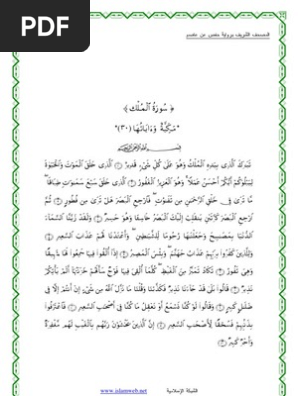 PDF
المصحف الشريف برواية حفص عن عاصم
﴿ سُورَةُ الْمُلْك ﴾
"مَكِّيَّةٌ وَءَايَاتُهَا (٣٠)"
بِسْمِ ٱللَّهِ ٱلرَّحْمَٰنِ ٱلرَّحِيمِ
تَبَٰرَكَ ٱلَّذِي بِيَدِهِ ٱلْمُلْكُ وَهُوَ عَلَىٰ كُلِّ شَيْءٍ قَدِيرٌ ۝١ ٱلَّذِي خَلَقَ ٱلْمَوْتَ وَٱلْحَيَوٰةَ
لِيَبْلُوَكُمْ أَيُّكُمْ أَحْسَنُ عَمَلًا ۚ وَهُوَ ٱلْعَزِيزُ ٱلْغَفُورُ ۝٢ ٱلَّذِي خَلَقَ سَبْعَ سَمَٰوَٰتٍ طِبَاقًا ۖ
مَّا تَرَىٰ فِي خَلْقِ ٱلرَّحْمَٰنِ مِن تَفَٰوُتٍ ۖ فَٱرْجِعِ ٱلْبَصَرَ هَلْ تَرَىٰ مِن فُطُورٍ ۝٣ ثُمَّ
ٱرْجِعِ ٱلْبَصَرَ كَرَّتَيْنِ يَنقَلِبْ إِلَيْكَ ٱلْبَصَرُ خَاسِئًا وَهُوَ حَسِيرٌ ۝٤ وَلَقَدْ زَيَّنَّا ٱلسَّمَآءَ
ٱلدُّنْيَا بِمَصَٰبِيحَ وَجَعَلْنَٰهَا رُجُومًا لِّلشَّيَٰطِينِ ۖ وَأَعْتَدْنَا لَهُمْ عَذَابَ ٱلسَّعِيرِ ۝٥
وَلِلَّذِينَ كَفَرُوا۟ بِرَبِّهِمْ عَذَابُ جَهَنَّمَ ۖ وَبِئْسَ ٱلْمَصِيرُ ۝٦ إِذَآ أُلْقُوا۟ فِيهَا سَمِعُوا۟ لَهَا شَهِيقًا
وَهِيَ تَفُورُ ۝٧ تَكَادُ تَمَيَّزُ مِنَ ٱلْغَيْظِ ۖ كُلَّمَآ أُلْقِيَ فِيهَا فَوْجٌ سَأَلَهُمْ خَزَنَتُهَآ أَلَمْ يَأْتِكُمْ
نَذِيرٌ ۝٨ قَالُوا۟ بَلَىٰ قَدْ جَآءَنَا نَذِيرٌ فَكَذَّبْنَا وَقُلْنَا مَا نَزَّلَ ٱللَّهُ مِن شَيْءٍ إِنْ أَنتُمْ إِلَّا فِي
ضَلَٰلٍ كَبِيرٍ ۝٩ وَقَالُوا۟ لَوْ كُنَّا نَسْمَعُ أَوْ نَعْقِلُ مَا كُنَّا فِيٓ أَصْحَٰبِ ٱلسَّعِيرِ ۝١٠ فَٱعْتَرَفُوا۟
بِذَنۢبِهِمْ فَسُحْقًا لِّأَصْحَٰبِ ٱلسَّعِيرِ ۝١١ إِنَّ ٱلَّذِينَ يَخْشَوْنَ رَبَّهُم بِٱلْغَيْبِ لَهُم مَّغْفِرَةٌ
وَأَجْرٌ كَبِيرٌ ۝١٢
www.islamweb.net الشبكة الإسلامية